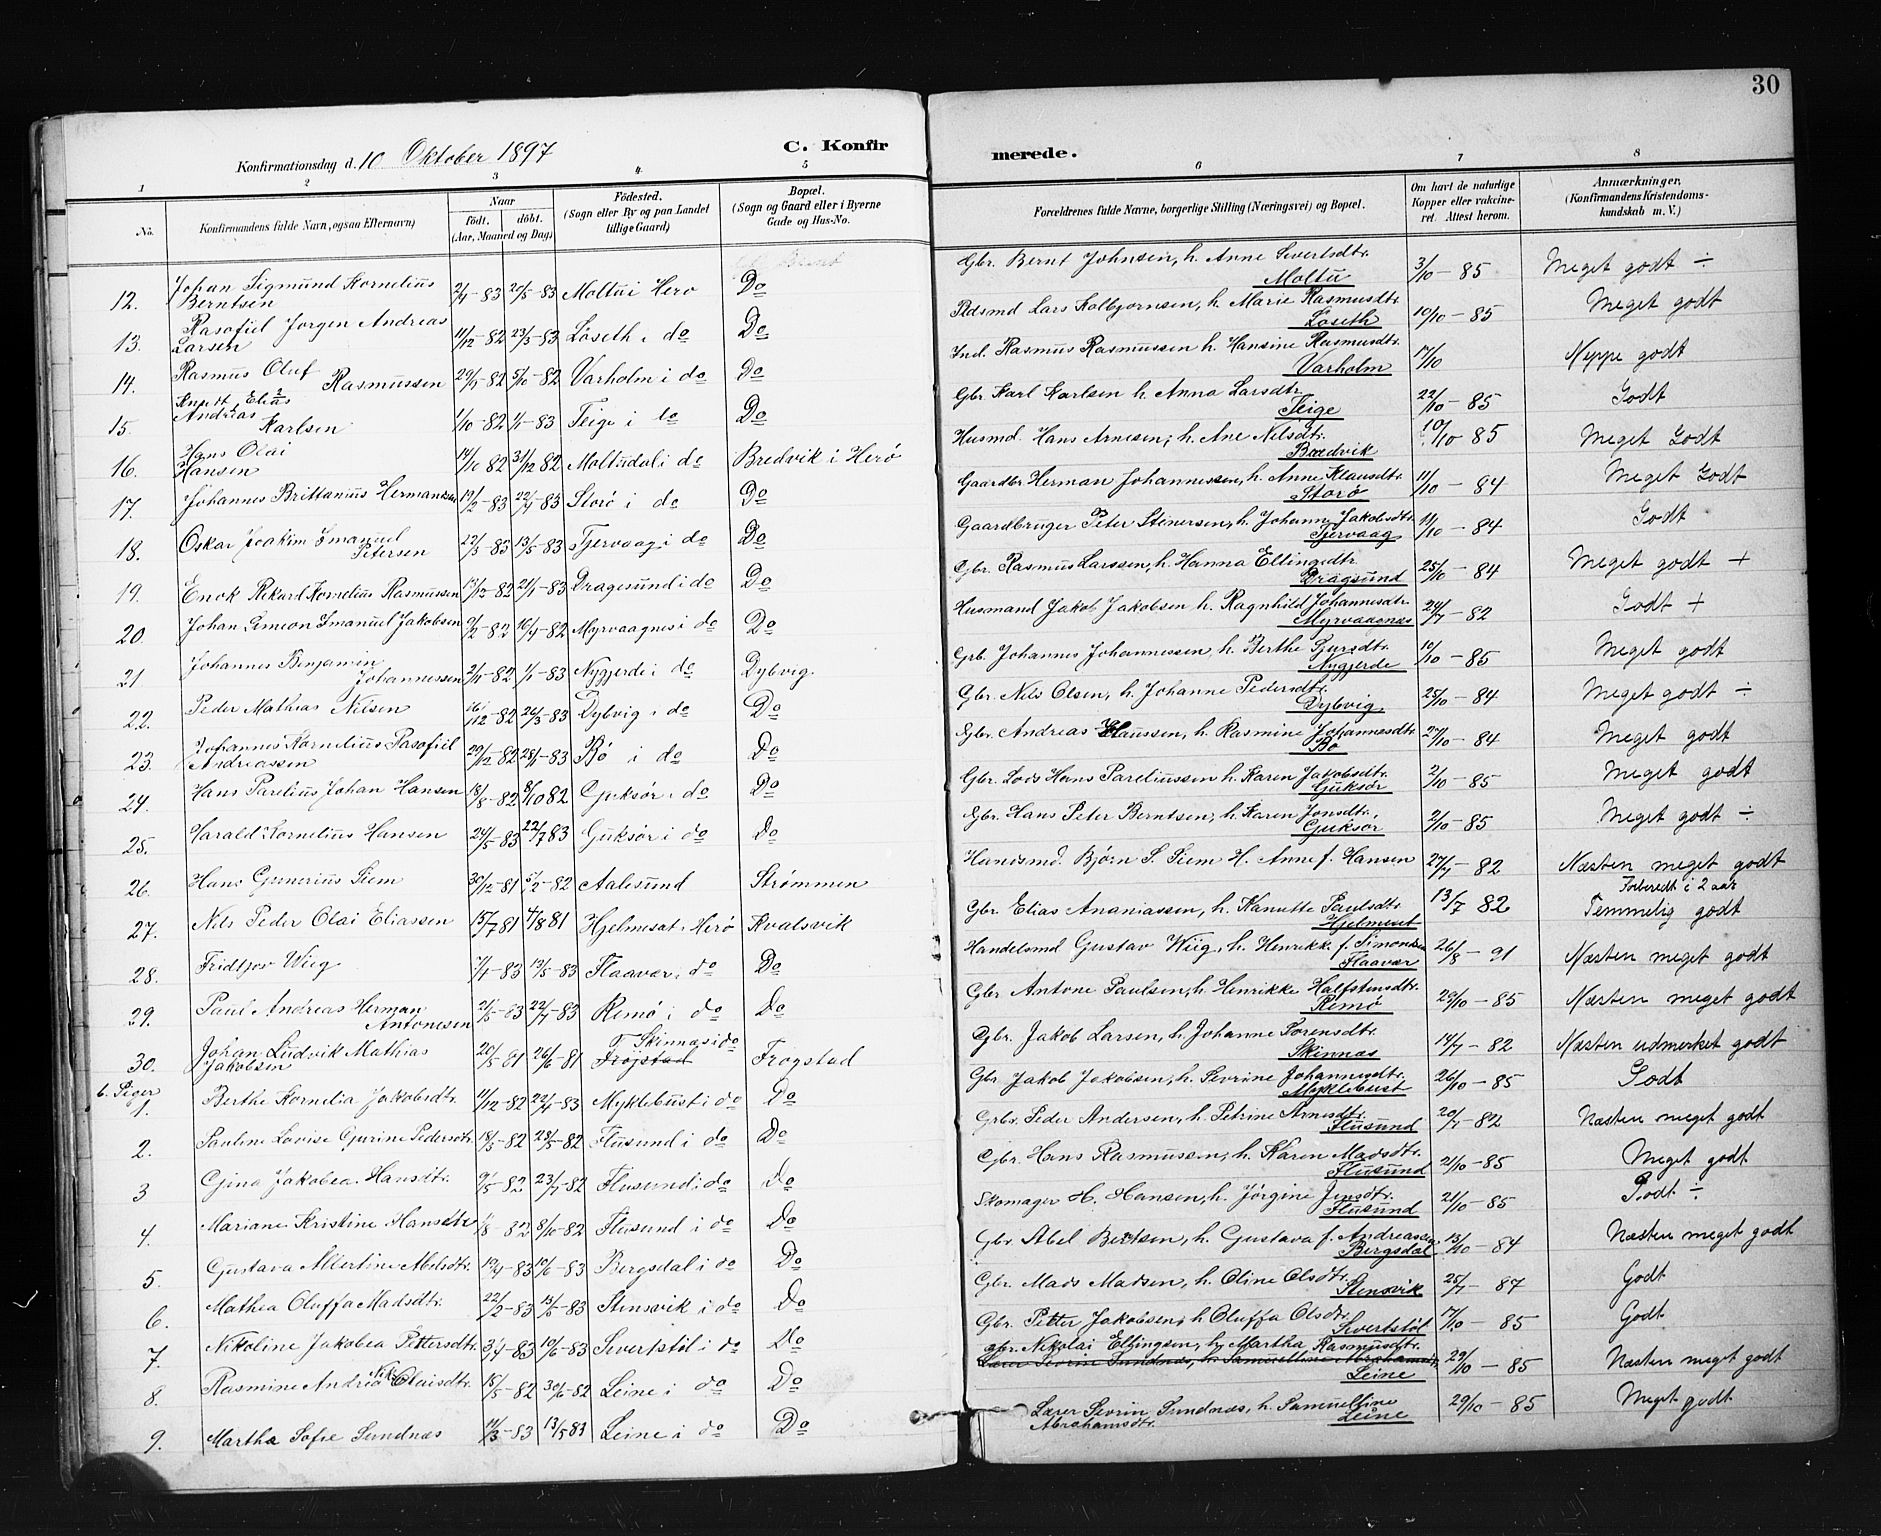 30
Konfirmationsdag d. 10 Oktober 1897
C. Konfirmerede.
1 2 3 4 5 6 7 8
No. Konfirmandens fulde Navn, (ogsaa Efternavn) Naar Født. døbt. (Aar, Maaned og Dag) Fødested. (Sogn eller By og paa Landet tillige Gaard) Bopæl. (Sogn og Gaard eller i Byerne Gade og Hus-No. Forældrenes fulde Navne, borgerlige Stilling (Næringsvei) og Bopæl. Om havt de naturlige Kopper eller vakcineret. Attest herom. Anmærkninger. (Konfirmandens Kristendomskundskab m. V.)
12. Johan Sigmund Kornelius Berntsen 2/4-83 20/5-83 Moltu i Herø Do Gbr. Bernt Johnsen, h. Anne Sivertsdtr. Moltu 3/10-85 Meget godt ÷
13. Rasofiel Jørgen Andreas Larsen 11/12-82 23/3-83 Løseth i do Do Lars Kolbjørnsen, h. Marie Rasmusdtr. Løseth 10/10-85 Meget godt
14. Rasmus Oluf Rasmussen 5/10-82 Varholm i do Do Ind. Rasmus Rasmussen h. Hansine Rasmusdtr. Varholm 17/10 Neppe godt
15. Knudt Elias Andreas Karlsen 1/10-82 1/1-83 Teige i do Do Gbr. Karl Karlsen h. Anna Larsdtr. Teige 22/10-85 Godt
16. Hans Olai Hansen 14/10 82 31/12 82 Moltudal i do Bredvik i Herø Husmd. Hans Arnesen, h. Ane Nilsdtr. Bredvik 10/10 85 Meget Godt
17. Johannes Brittanius Hermansen 19/2-83 22/4-83 Storø i do Do Gaardbr Herman Johannessen, h. Anne Klausdtr. Storø 11/10-84 Meget Godt
18. Oskar Joakim Imanuel Petersen 22/3-83 13/5-83 Tjervaag i do Do Gaardbruger Peter Stinersen, h. Johanne Jakobsdtr. Tjervaag 11/10-84 Godt
19. Enok Rikard Kornelius Rasmussen 13/12-82 21/1-83 Dragesund i do Do Gbr. Rasmus Larssen, h. Hanna Ellingsdtr. Dragsund 25/10-84 Meget godt +
20. Johan Simeon Imanuel Jakobsen 9/2-82 16/4-82 Myrvaagnes i do Do Husmand Jakob Jakobsen h. Ragnhild Johannesdtr. Myrvaagnes 24/7-82 Godt +
21 Johannes Benjamin Johannessen 2/11-82 1/1-83 Nygjerde i do Dybvig. Grb. Johannes Johannessen, h. Berthe Sjursdtr. Nygjerde 10/10-85 Meget godt
22. Peder Mathias Nilsen 26/3-83 Dybvig i do Do Gbr. Nils Olsen, h. Johanne Pedersdtr. Dybvig. 25/10-84 Meget godt ÷
23. Johannes Kornelius Rasofiel Andreassen 29/12-82 28/1-83 Bø i do Do Gbr. Andreas Klaussen, h. Rasmine Johannesdtr. Bø 27/10-84 Meget godt
24. Hans Parelius Johan Hansen 18/8-82 8/10 82 Gjuksør i do Do Gbr. Lods Hans Pareliussen h. Karen Jakobsdtr. Gjuksør 2/10-85 Meget godt
25. Harald Kornelius Hansen 24/5-83 22/7 83 Gjuksør i do Do Gbr. Hans Peter Berntsen, h. Karen Jonsdtr. Gjuksør 2/10-85 Meget godt ÷
26. Hans Gunerius Siem 30/12-81 5/2-82 Aalesund Strømmen Handsmd. Bjørn S. Siem H. Anne f. Hansen 27/7-82 Næsten meget godt
27. Nils Peder Olai Eliassen 15/7 81 4/8 81 Hjelmesæt i Herø Kvalsvik Gbr. Elias Ananiassen, h. Kanutte Paulsdtr. Hjelmeset 13/7 82 Forberedt i 2 aar Temmelig godt
28. Fridtjov Wiig 1/1-83 13/5-83 Flaavær i do Do Handelsmd Gustav Wiig, h. Henrikke f. Simonsen Flaavær 26/8-91 Næsten meget godt
29. Paul Andreas Herman Antonesen 21/5-83 22/7-83 Remø i do Do Gbr Antone Paulsen, h. Henrikke Halfstensdtr. Remø 29/10-85 Næsten meget godt
30. Johan Ludvik Mathias Jakobsen 20/5-81 26/6-81 Skinnæs i do Frøjstad Frogstad Gbr. Jakob Larsen, h. Johanne Sorensdtr. Skinnæs 14/7-82 Næsten udmerket godt
b. Piger
1. Berthe Kornelia Jakobsdtr. 11/12-82 22/4-83 Myklebust i do Do Gbr Jakob Jakobsen, h. Sevrine Johannesdtr. Myklebust 26/10-85 Godt
2. Pauline Lovise Gurine Pedersdtr. 18/3-82 28/5-82 Flusund i do Do Grbr. Peder Andersen, h. Petrine Arnesdtr. Flusund 20/7-82 Næsten meget godt
3 Gina Jakobea Hansdtr. 9/5-82 23/7-82 Flusund i do Do Gbr. Hans Rasmussen, h. Karen Madsdtr. Flusund 21/10-85 Meget godt
4. Mariane Kristine Hansdtr. 1/8-82 8/10-82 Flusund i do Do Skomager H. Hansen, h. Jørgine Jensdtr. Flusund 21/10-85 Godt ÷
5. Gustava Albertine Abelsdtr. 19/4-83 10/6-83 Bergsdal i do Do Gbr Abel Berntsen, h. Gustava f. Andreassen Bergsdal 13/10-84 Næsten meget godt
6. Mathea Oluffa Madsdtr. 22/2-83 13/5-83 Stensvik i do Do Gbr. Mads Madsen, h. Oline Olsdtr. Stensvik 25/7-87 Godt
7. Nikoline Jakobea Pettersdtr. 3/4-83 10/6-83 Sivertstøl i do Do Gbr. Petter Jakobsen, h. Oluffa Olsdtr. Sivertstøl 17/10-85 Godt
8. Rasmine Andrea Nik. Olaisdtr. 18/5-82 30/6-82 Leine i do Do gbr. Nikolai Ellingsen, h. Martha Rasmusdtr. Lærer Sevrin Sundnæs, h. Samueline Abrahamsdtr. Leine 29/10-85 Næsten meget godt
9. Martha Sofie Sundnæs 14/3-83 13/5 83 Leine i do Do Lærer Sevrin Sundnæs, h. Samuelline Abrahamsdtr. Leine 29/10-85 Meget godt